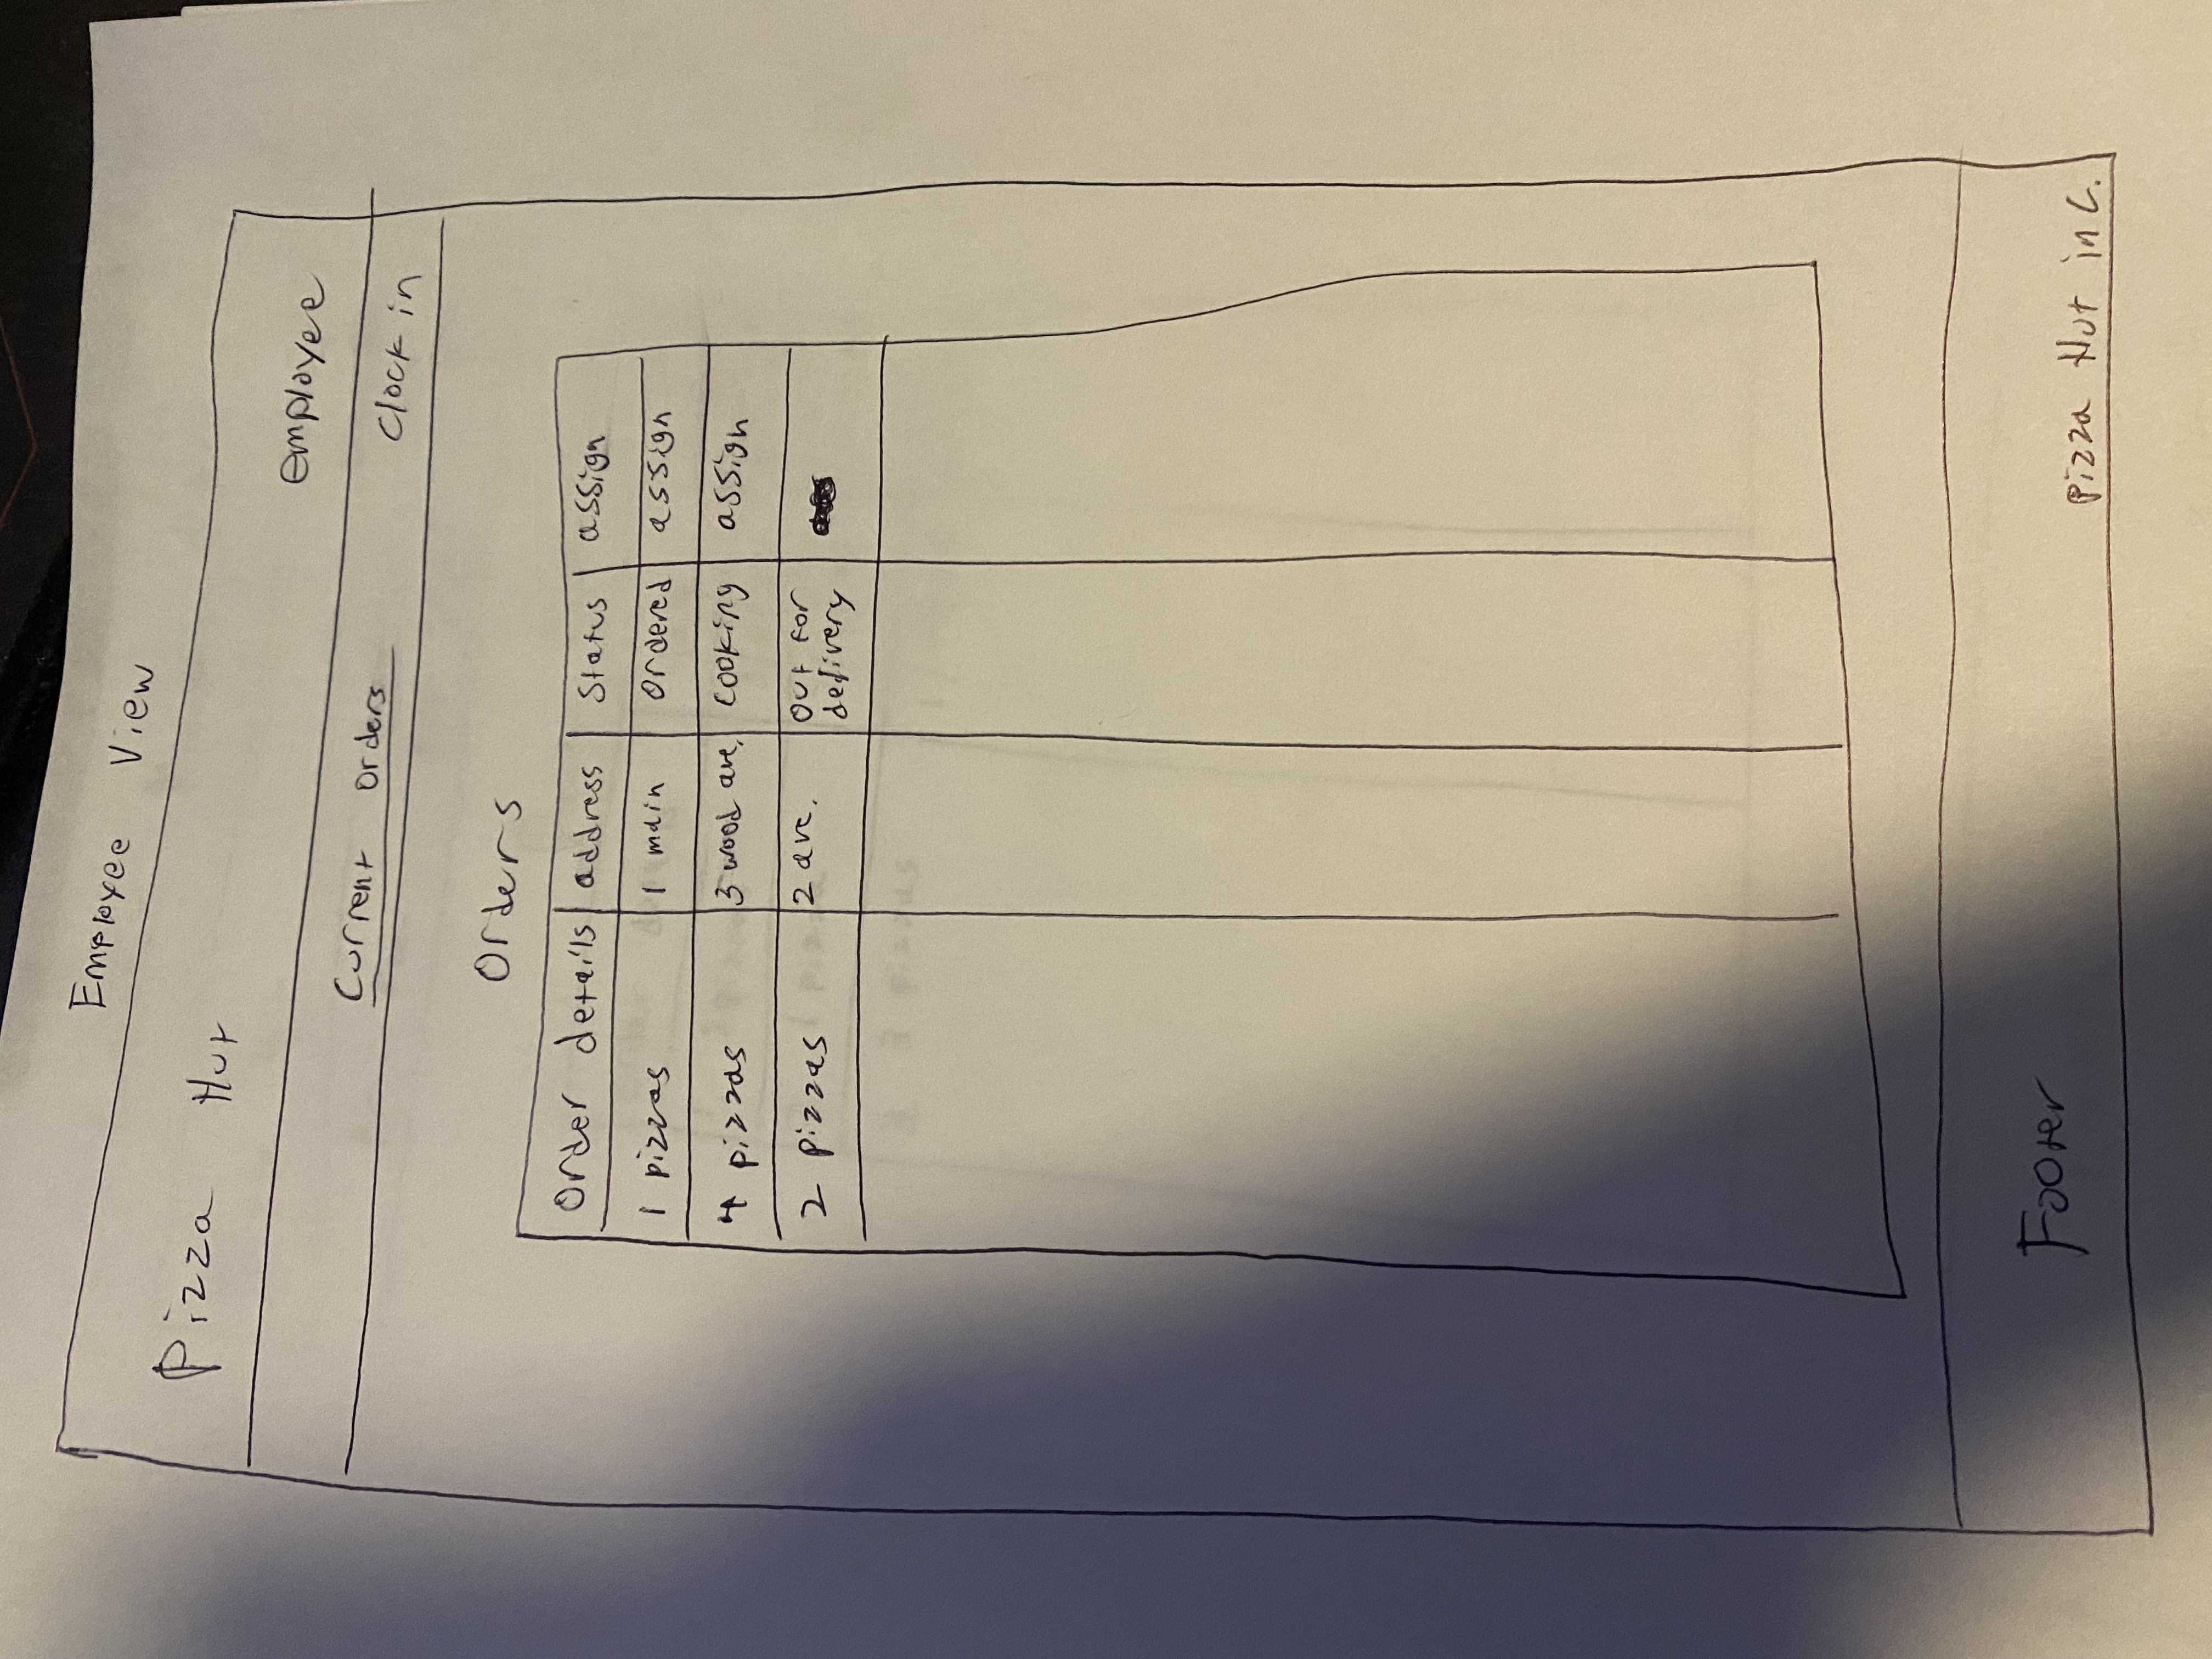 Employee View
Pizza Hut
employee
Current orders
Clock in
Orders
Order details address Status assign
1 pizzas 1 main ordered assign
4 pizzas 3 wood ave. cooking assign
2 pizzas 2 ave. out for delivery
Footer
Pizza Hut inc.